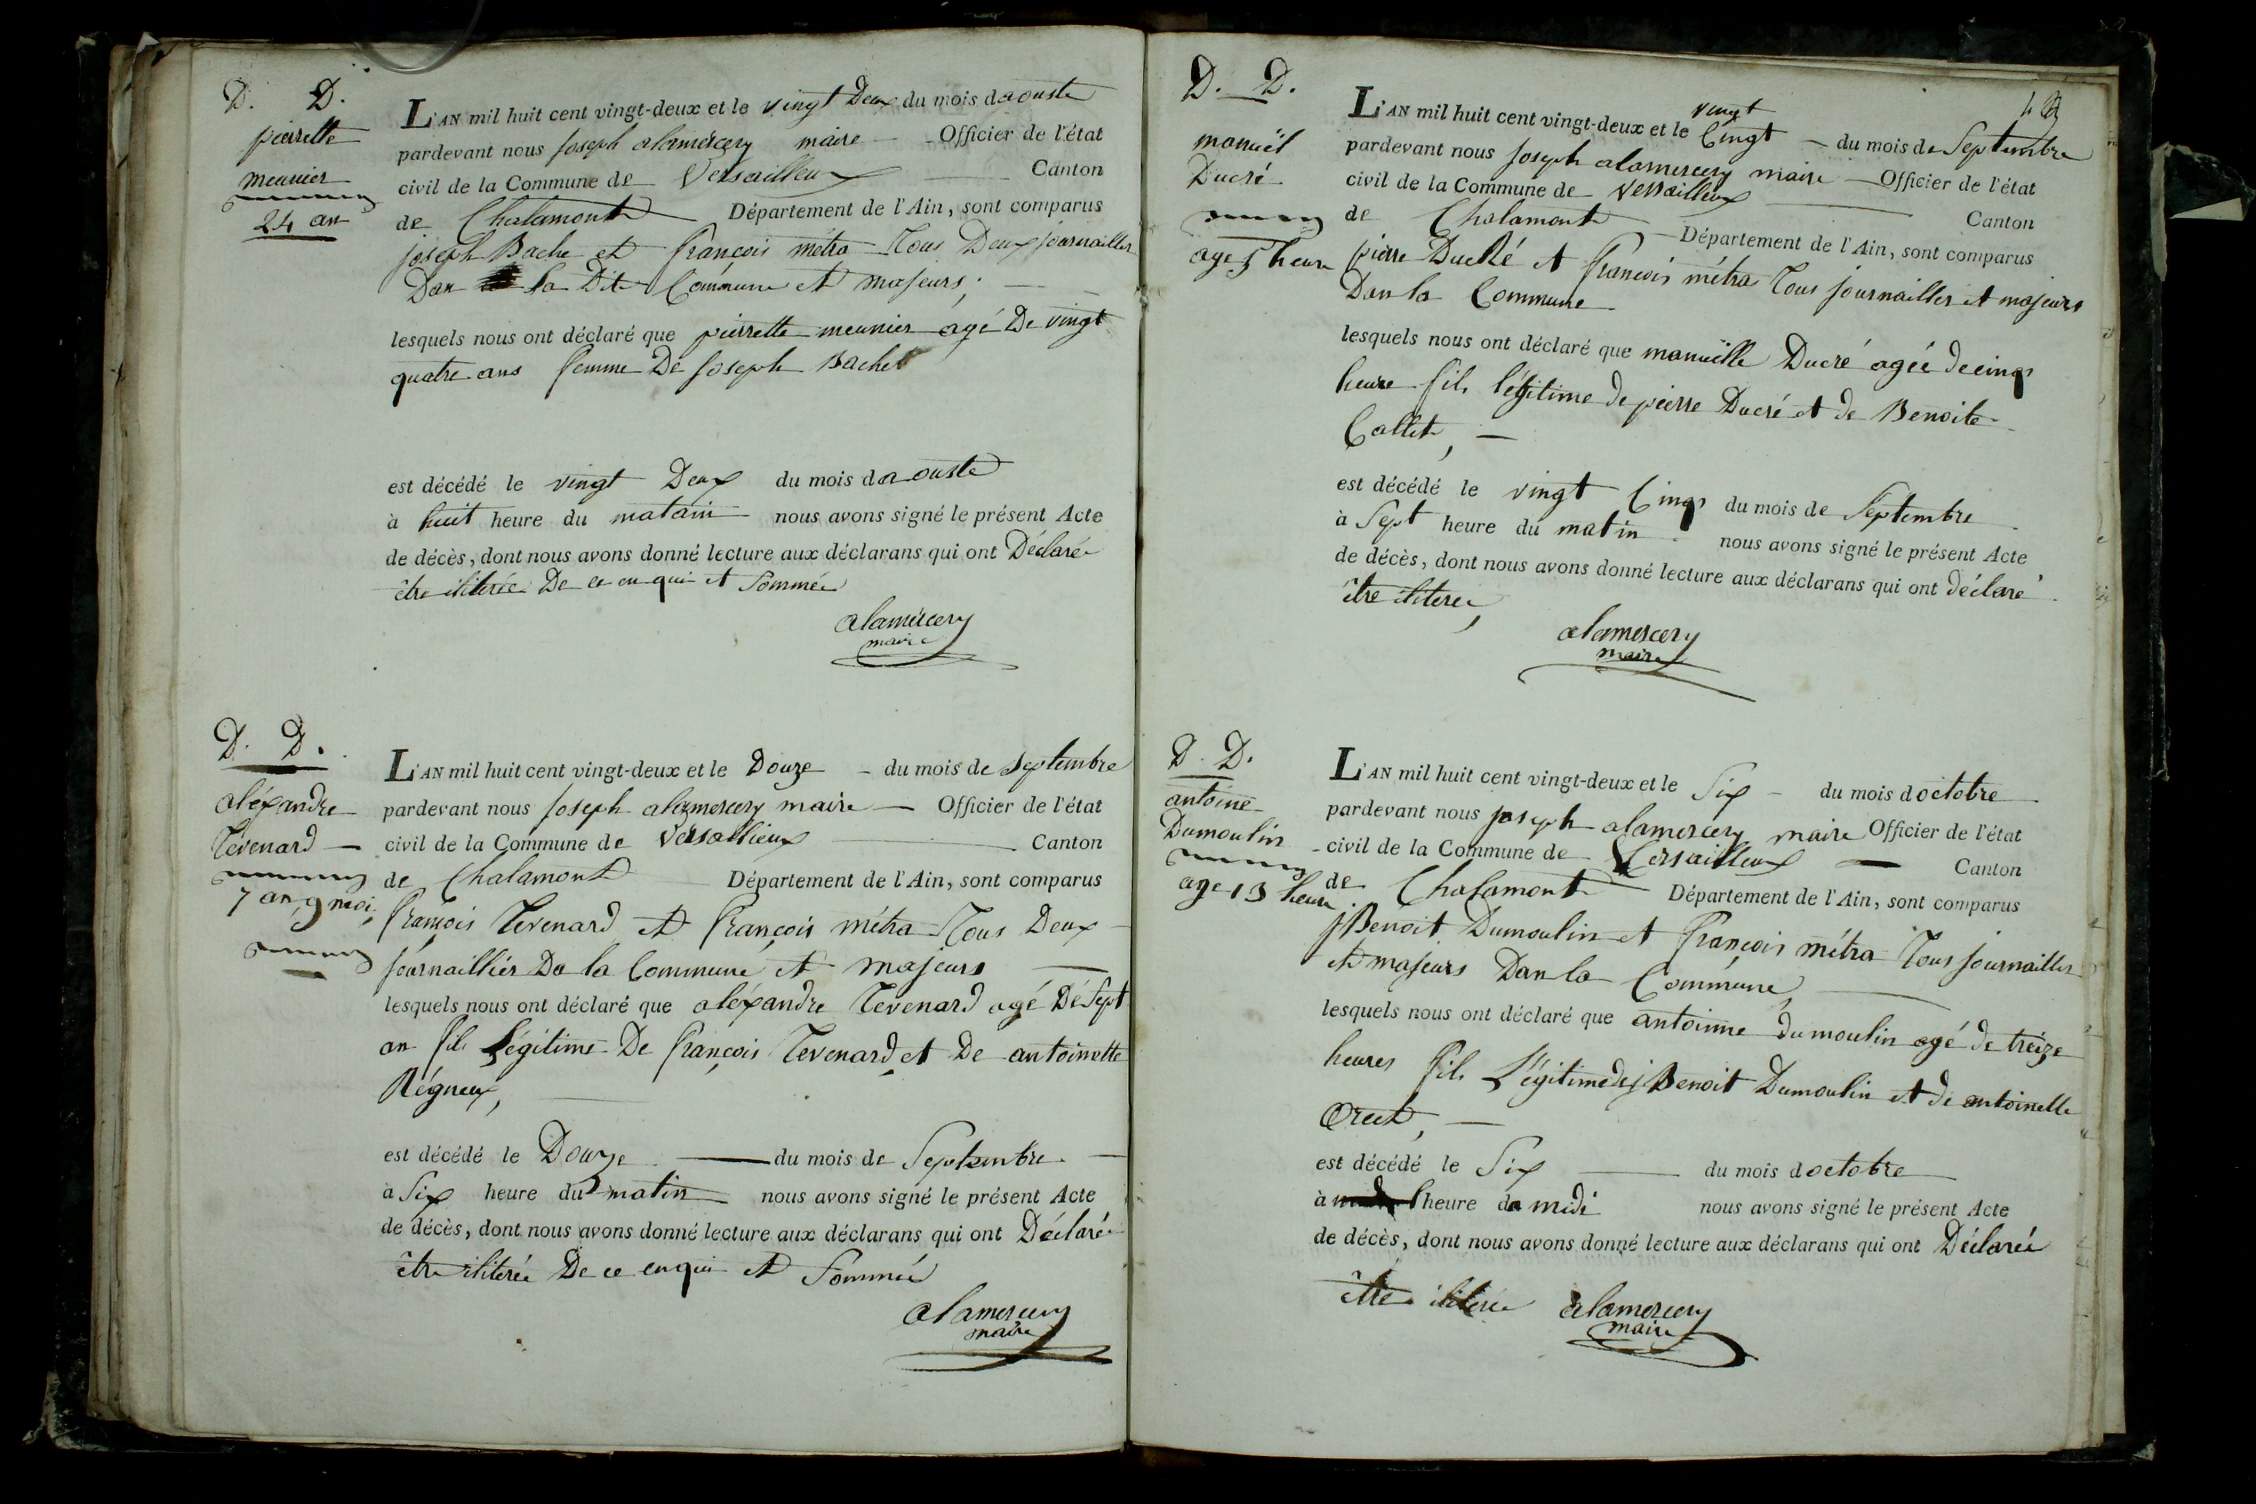 D. D.
pierrette
meunier
24 an
L'AN mil huit cent vingt-deux et le vingt Deux du mois d aouste
pardevant nous joseph alamercery maire Officier de l'état
civil de la Commune de Versailleux Canton
de Chalamont Département de l'Ain, sont comparus
joseph Bache et françois métra Tous Deux journaillier
Dan la Dite Commune et majeurs,
lesquels nous ont déclaré que pierrette meunier agé De vingt
quatre ans femme De joseph Bache
est décédé le vingt Deux du mois d aouste
à huit heure du matain nous avons signé le présent Acte
de décès, dont nous avons donné lecture aux déclarans qui ont Déclarée
être iliterée De ce enquis et Sommée
alamercery
maire
D. D.
aléxandre
Tévenard
7 an 9 moi
L'AN mil huit cent vingt-deux et le Douze du mois de septembre
pardevant nous joseph alamercery maire Officier de l'état
civil de la Commune de Versallieux Canton
de Chalamont Département de l'Ain, sont comparus
françois Tevenard et françois métra Tous Deux
journailliér Da la Commune et majeurs
lesquels nous ont déclaré que aléxandre Tevenard agé Dé Sept
an fils Légitime De françois Tevenard et De antoinette
Régneux,
est décédé le Douze du mois de Septembre
à Six heure du matin nous avons signé le présent Acte
de décès, dont nous avons donné lecture aux déclarans qui ont Déclarée
être iliterée De ce enquis et Sommée
alamercery
maire
D. D.
manuël
Ducré
age 5 heure
vingt
L'AN mil huit cent vingt-deux et le Cingt du mois de Septembre
pardevant nous joseph alamercery maire Officier de l'état
civil de la Commune de Versailleux Canton
de Chalamont Département de l'Ain, sont comparus
pierre Ducré et françois métra Tous journaillier et majeurs
Dan la Commune
lesquels nous ont déclaré que manuëlle Ducré agée de cinq
heure fils légitime de pierre Ducré et de Benoite
Collet,
est décédé le vingt Cinq du mois de Septembre
à Sept heure du matin nous avons signé le présent Acte
de décès, dont nous avons donné lecture aux déclarans qui ont déclaré
être iliteree,
alamercery
maire
D. D.
antoine
Dumoulin
age 13 heure
L'AN mil huit cent vingt-deux et le Six du mois d octobre
pardevant nous joseph alamercery maire Officier de l'état
civil de la Commune de Versailleux Canton
de Chalamont Département de l'Ain, sont comparus
jBenoit Dumoulin et françois métra Tous journaillier
et majeurs Dan la Commune,
lesquels nous ont déclaré que antoinne dumoulin agé de tréize
heures fils Légitime de jBenoit Dumoulin et de antoinette
est décédé le Six du mois d octobre
à l'heure da midi nous avons signé le présent Acte
de décès, dont nous avons donné lecture aux déclarans qui ont Déclarée
être iliterée alamercery
maire